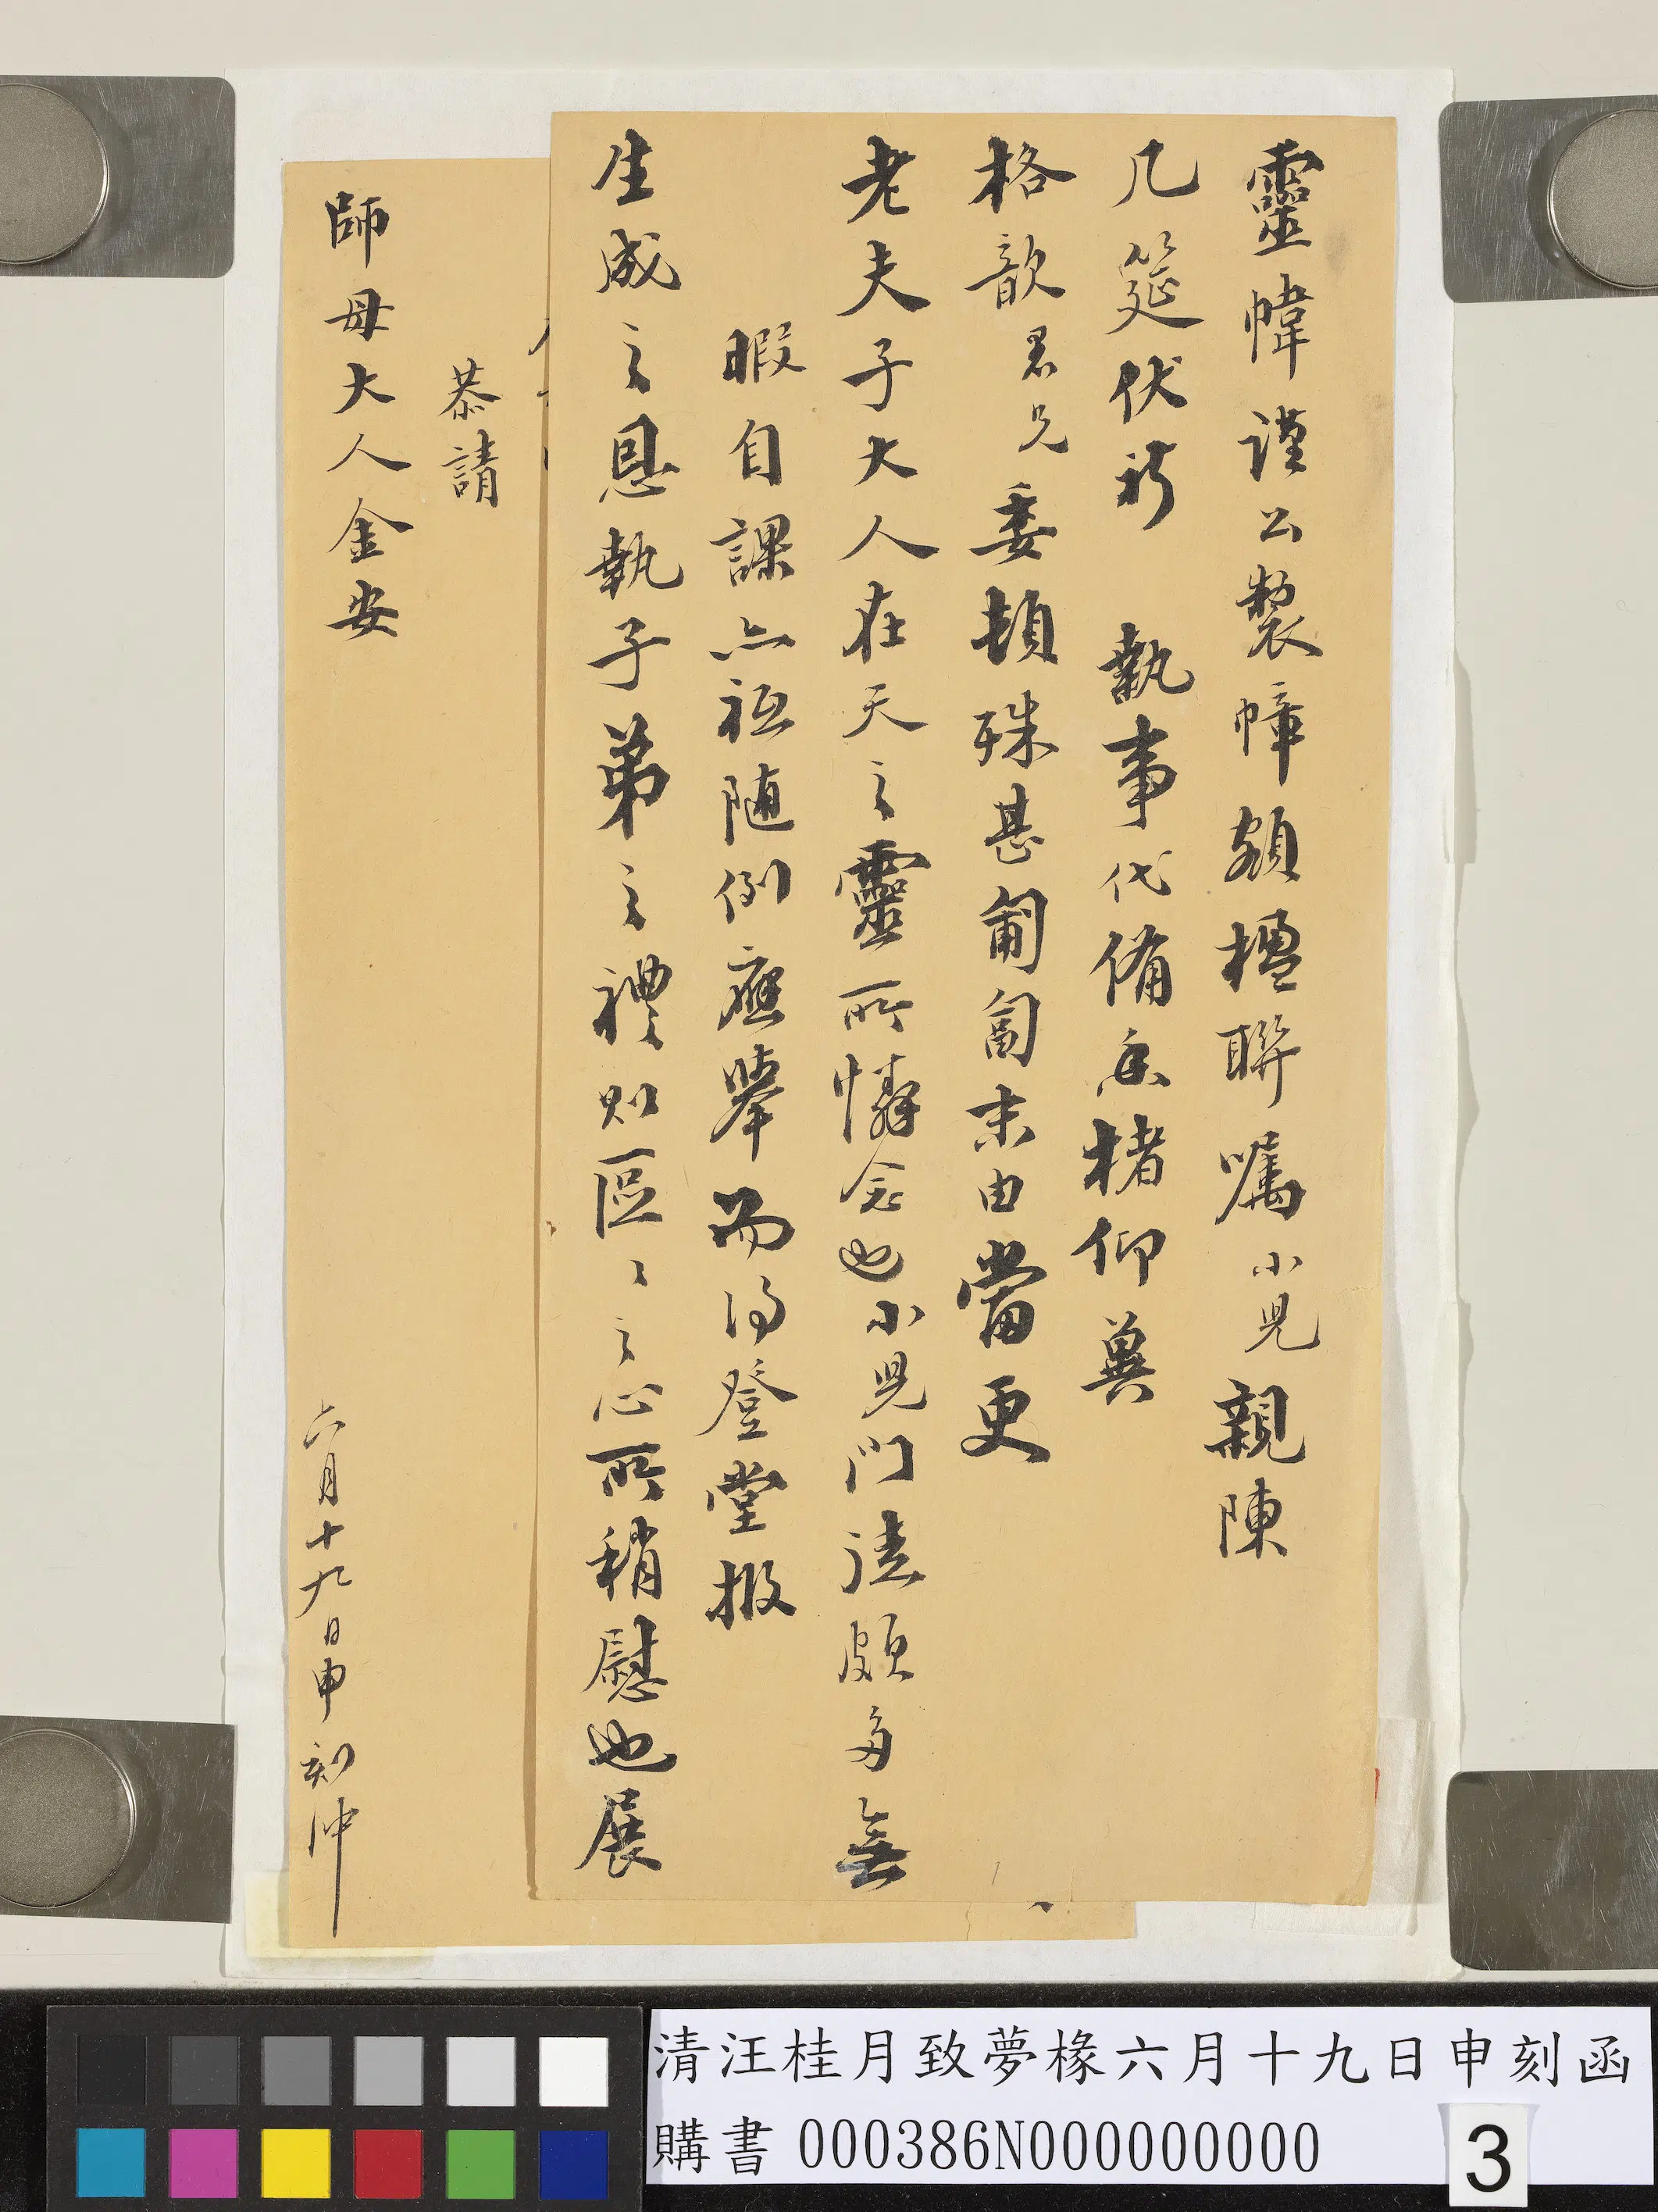 靈幃謹公製幛額楹聯囑小兒親陳
几筵伏祈　執事代備香楮仰冀
格歆君兄委頓殊甚匍匐末由當更
老夫子大人在天之靈所憐念也小兒門徒頗多無
暇自課亦祗隨例應舉而得登堂報
生成之恩執子弟之禮則區區之心所稍慰也展
恭請
師母大人金安
六月十九日申刻沖
清汪桂月致夢椽六月十九日申刻函
購書 000386N000000000
3